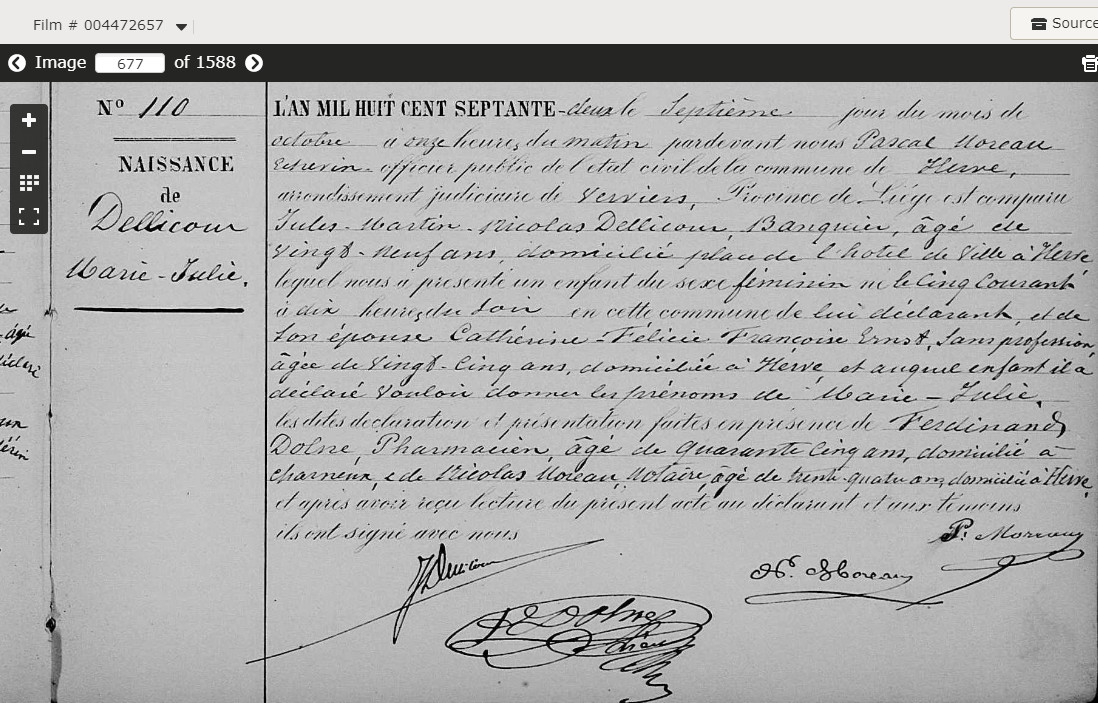 Film # 004472657
Source
Image 677 of 1588
N° 110
NAISSANCE
de
Dellicour
Marie-Julie.
L'AN MIL HUIT CENT SEPTANTE-deux le Septième jour du mois de
octobre à onze heures du matin pardevant nous Pascal Moreau
Echevin officier public de l'état civil de la commune de Herve,
arrondissement judiciaire de Verviers, Province de Liége est comparu
Jules-Martin-Nicolas Dellicour, Banquier, âgé de
Vingt-neuf ans, domicilié place de l'hotel de Ville à Herve
lequel nous a présenté un enfant du sexe féminin né le Cinq Courant
à dix heures du Soir en cette commune de lui déclarant, et de
Son épouse Cathérine-Félicie Françoise Ernst, Sans profession,
âgée de Vingt-Cinq ans, domiciliée à Herve et auquel enfant il a
déclaré Vouloir donner les prénoms de Marie-Julie,
les dites déclaration et présentation faites en présence de Ferdinand
Dolne, Pharmacien, âgé de Quarante Cinq ans, domicilié à
Charneux, & de Nicolas Moreau, Notaire, âgé de trente-quatre ans, domicilié à Herve,
et après avoir reçu lecture du présent acte au déclarant et aux témoins
ils ont signé avec nous
P. Moreau
JDellicour
N. Moreau
Dolne
âgée